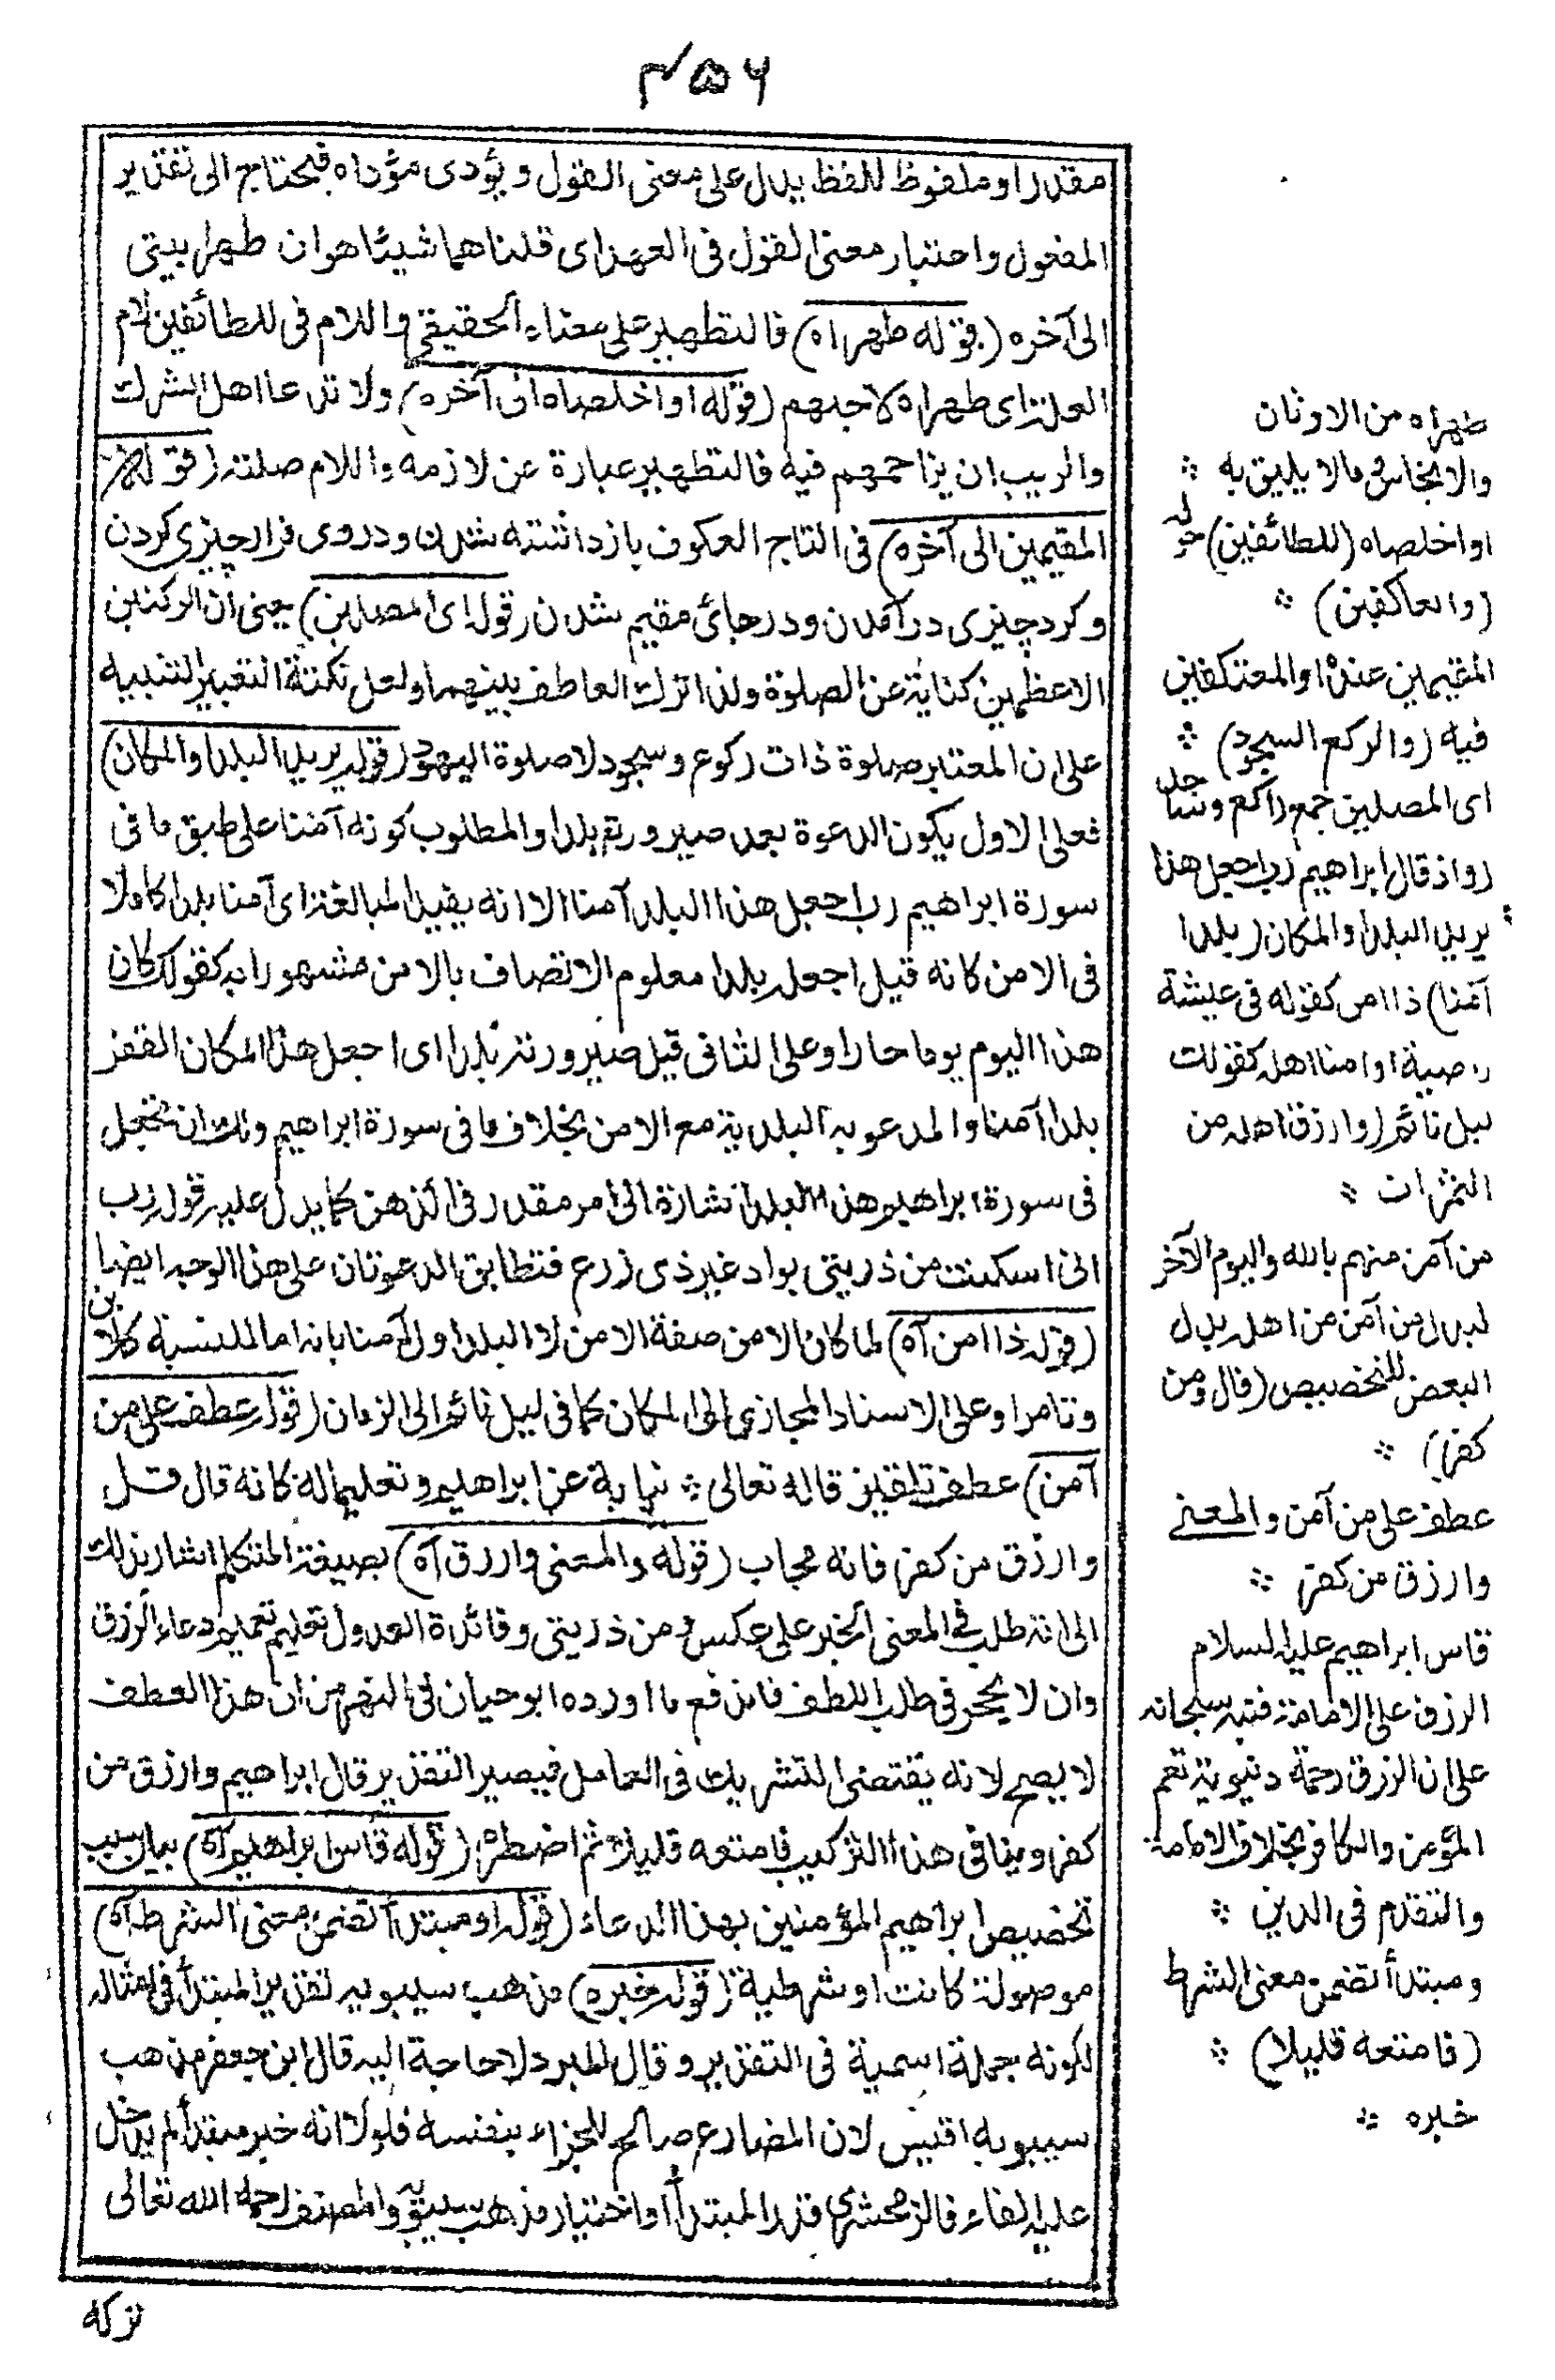 ۴۵۶
مقدرا وملفوظ للفظ يدل على معنى القول ويؤدى مؤداه فيحتاج الى تقدير
المفعول واعتبار معنى القول فى العهد اى قلنا هما شيئا هو ان طهرا بيتى
الى آخره (قوله طهراه) فالتطهير على معناه الحقيقى واللام فى للطائفين لام
العلة اى طهراه لاجلهم (قوله او اخلصاه الى آخره) ولا تدعا اهل الشرك
والريب ان يزاحمهم فيه فالتطهير عبارة عن لازمه واللام صلته (قوله
المقيمين الى آخره) فى التاج العكوف بازداشته شدن ودروى فرا چيزى كردن
وگرد چيزى درآمدن ودر جائ مقيم شدن (قوله اى المصلين) يعنى ان الركنين
الاعظمين كناية عن الصلوة ولذا ترك العاطف بينهما ولعل نكتة التعبير التنبيه
على ان المعتبر صلوة ذات ركوع وسجود لا صلوة اليهود (قوله يريد البلد والمكان)
فعلى الاول يكون الدعوة بعد صيرورته بلدا والمطلوب كونه آمنا على طبق ما فى
سورة ابراهيم رب اجعل هذا البلد آمنا الا انه يفيد المبالغة اى آمنا بلدا كاملا
فى الامن كانه قيل اجعله بلدا معلوم الاتصاف بالامن مشهورا به كقولك كان
هذا اليوم يوما حارا وعلى الثانى قبل صيرورته بلدا اى اجعل هذا المكان القفر
بلدا آمنا والمدعو به البلدية مع الامن بخلاف ما فى سورة ابراهيم ولك ان تجعل
فى سورة ابراهيم هذا البلد اشارة الى امر مقدر فى الذهن كما يدل عليه قوله رب
انى اسكنت من ذريتى بواد غير ذى زرع فتطابق الدعوتان على هذا الوجه ايضا
(قوله ذا امن آه) لما كان الامن صفة الامن لا البلد اول آمنا بانه اما للنسبة كلابن
وتامر او على الاسناد المجازى الى المكان كما فى ليل نائم الى الزمان (قوله عطف على من
آمن) عطف تلقين قاله تعالى ⁘ نيابة عن ابراهيم وتعليما له كانه قال قل
وارزق من كفر فانه مجاب (قوله والمعنى وارزق آه) بصيغة المتكلم اشار بذلك
الى انه طلب فى المعنى الخبر على عكس ومن ذريتى وفائدة العدول تعليم تعميم دعاء الرزق
وان لا يحجر فى طلب اللطف فاندفع ما اورده ابو حيان فى النهر من ان هذا العطف
لا يصح لانه يقتضى التشريك فى العامل فيصير التقدير قال ابراهيم وارزق من
كفر وينافى هذا التركيب فامتعه قليلا ثم اضطره (قوله قاس ابراهيم آه) بيان سبب
تخصيص ابراهيم المؤمنين بهذا الدعاء (قوله او مبتدأ تضمن معنى الشرط آه)
موصولة كانت او شرطية (قوله خبره) مذهب سيبويه تقدير المبتدأ فى امثاله
لكونه جملة اسمية فى التقدير وقال المبرد لا حاجة اليه قال ابن جعفر مذهب
سيبويه اقيس لان المضارع صالح للجزاء بنفسه فلولا انه خبر مبتدأ لم يدخل
عليه الفاء فالزمخشرى قدر المبتدأ واختيار مذهب سيبويه والمصنف رحمه الله تعالى
تركه
طهراه من الاوثان
والانجاس وما لا يليق به ⁘
او اخلصاه (للطائفين) حوله
(والعاكفين) ⁘
المقيمين عنده او المعتكفين
فيه (والركع السجود) ⁘
اى المصلين جمع راكع وساجد
(واذ قال ابراهيم رب اجعل هذا
يريد البلد والمكان (بلدا
آمنا) ذا امن كقوله فى عيشة
راضية او امنا اهله كقولك
ليل نائم (وارزق اهله من
الثمرات ⁘
من آمن منهم بالله واليوم الآخر
ابدل من آمن من اهله بدل
البعض للتخصيص (قال ومن
كفر) ⁘
عطف على من آمن والمعنى
وارزق من كفر ⁘
قاس ابراهيم عليه السلام
الرزق على الامامة فنبه سبحانه
على ان الرزق رحمة دنيوية تعم
المؤمن والكافر بخلاف الامامة
والتقدم فى الدين ⁘
ومبتدأ تضمن معنى الشرط
(فامتعه قليلا) ⁘
خبره ⁘